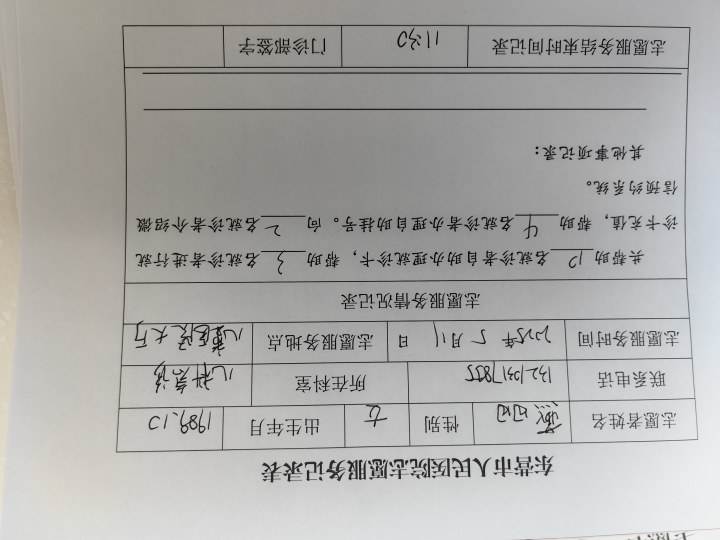 东营市人民医院志愿服务记录表
志愿者姓名 性别 女 出生年月 1989.10
联系电话 13210317855 所在科室 儿科急诊
志愿服务时间 2025年 5 月 11 日 志愿服务地点 儿童医院大厅
志愿服务情况记录
共帮助 10 名就诊者自助办理就诊卡，帮助 3 名就诊者进行就
诊卡充值，帮助 4 名就诊者办理自助挂号。向 2 名就诊者介绍微
信预约系统。
其他事项记录：
志愿服务结束时间记录 11:30 门诊部签字